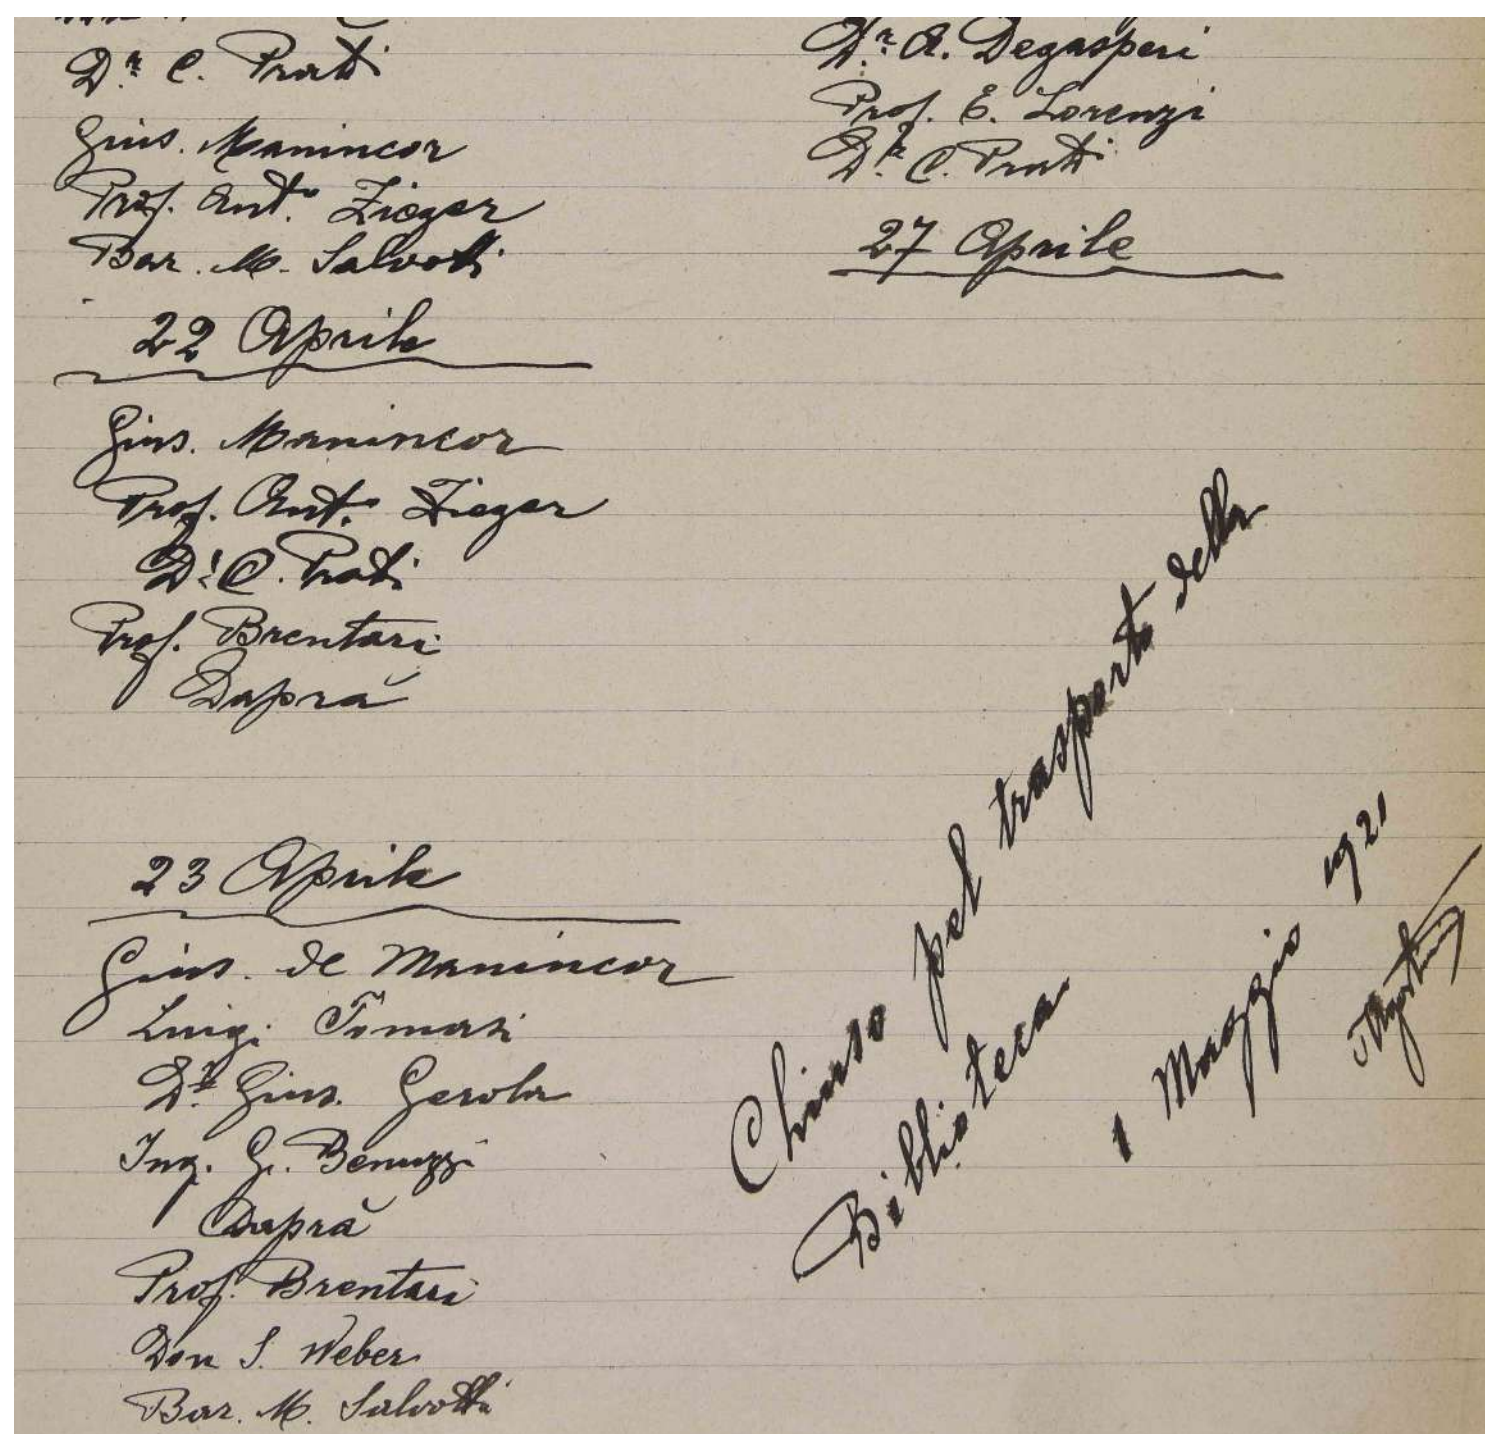 Dr. C. Prati
Gius. Manincor
Prof. Ant.o Zieger
Bar. M. Salvotti
22 Aprile
Gius. Manincor
Prof. Ant.o Zieger
Dr. C. Prati
Prof. Brentari
Daprà
23 Aprile
Gius. de Manincor
Luigi Tomasi
Dr. Gius. Gerola
Ing. G. Benuzzi
Daprà
Prof. Brentari
Don S. Weber
Bar. M. Salvotti
Dr. A. Degasperi
Prof. E. Lorenzi
Dr. C. Prati
27 Aprile
Chiuso pel trasporto della
Biblioteca
1 Maggio 1921